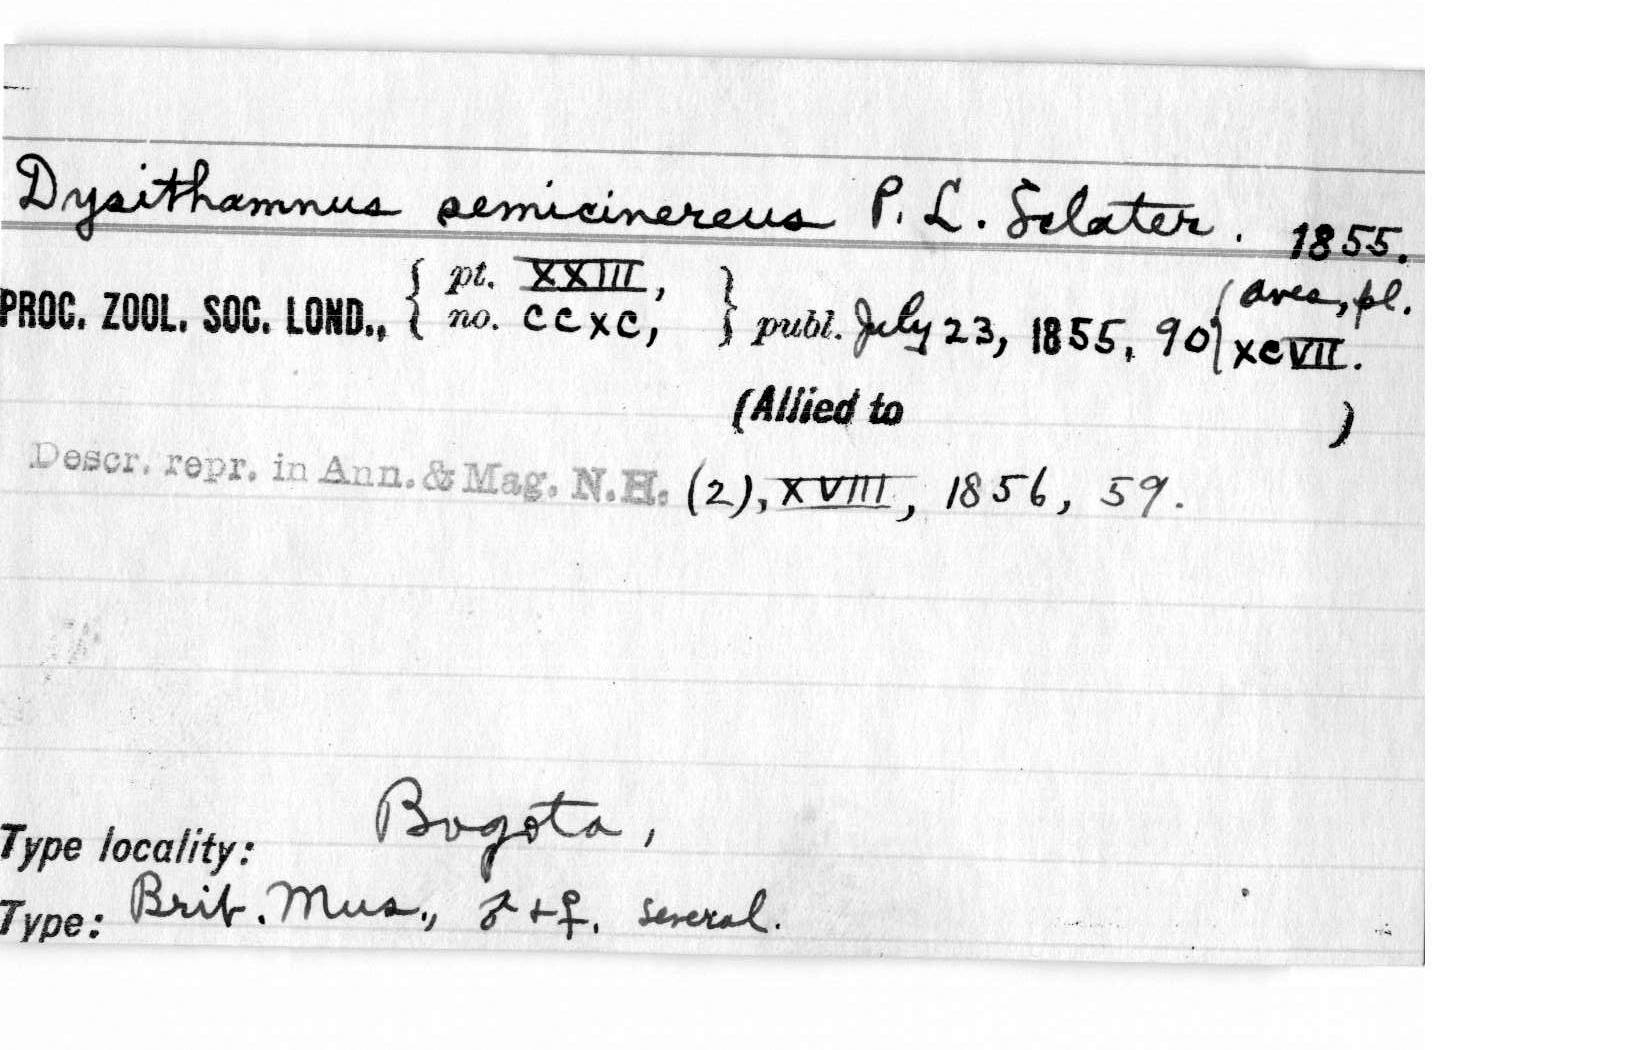 Dysithamnus semicinereus P. L. Sclater. 1855.
PROC. ZOOL. SOC. LOND., { pt. XXIII, no. CCXC, } publ. July 23, 1855, 90 { Aves, pl. XCVII.
(Allied to )
Descr. repr. in Ann. & Mag. N.H. (2), XVIII, 1856, 59.
Type locality: Bogota,
Type: Brit. Mus., ♂ + ♀. several.